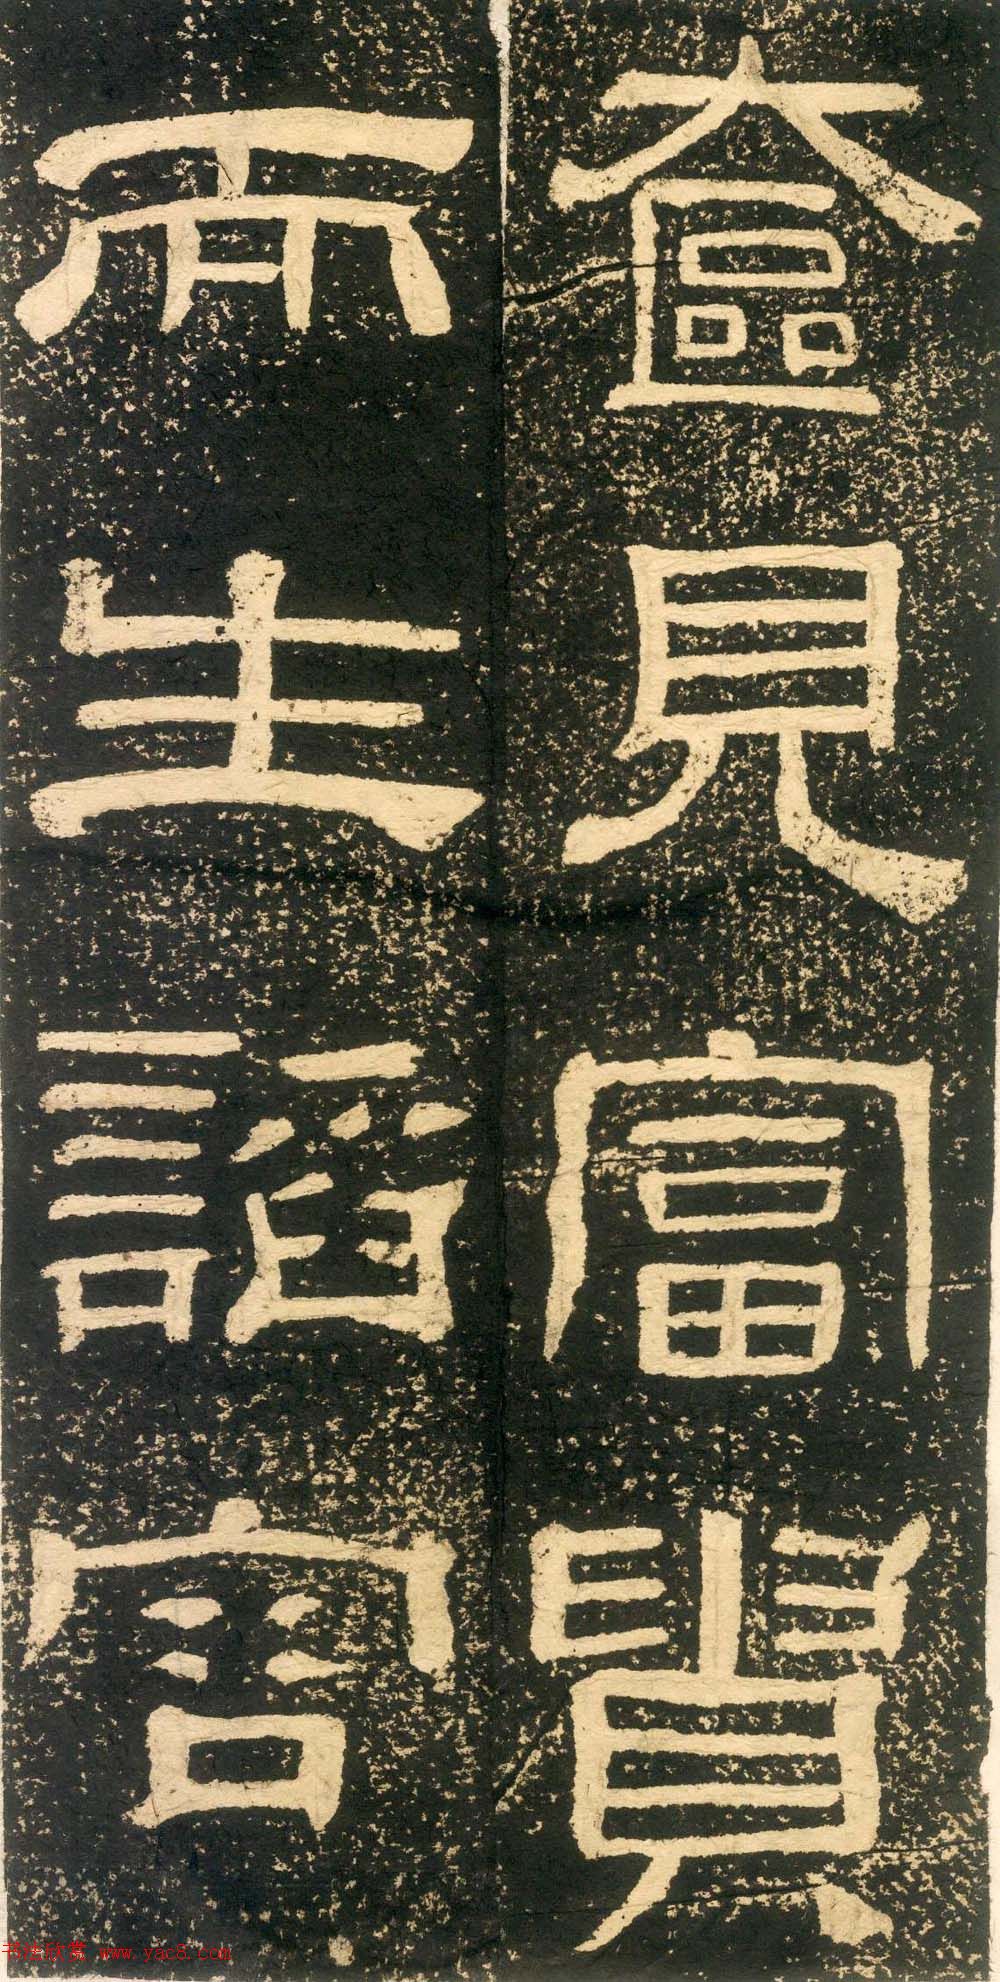 奩見富貴
而生諂容
书法欣赏 www.yac8.com